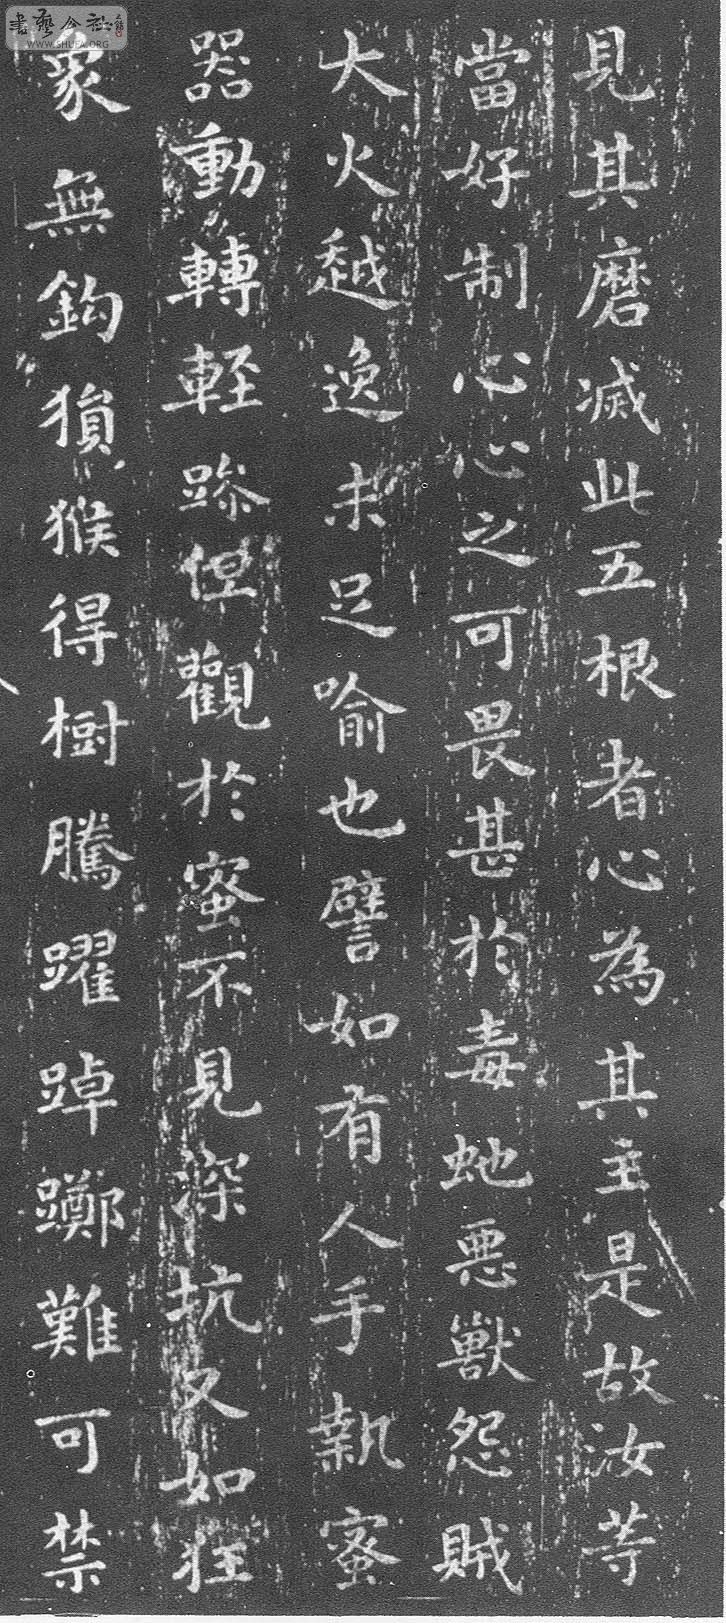 見其磨滅此五根者心為其主是故汝等
當好制心心之可畏甚於毒虵惡獸怨賊
大火越逸未足喻也譬如有人手執蜜
器動轉輕躁但觀於蜜不見深坑又如狂
象無鈎猨猴得樹騰躍踔躑難可禁
書藝公社
WWW.SHUFA.ORG